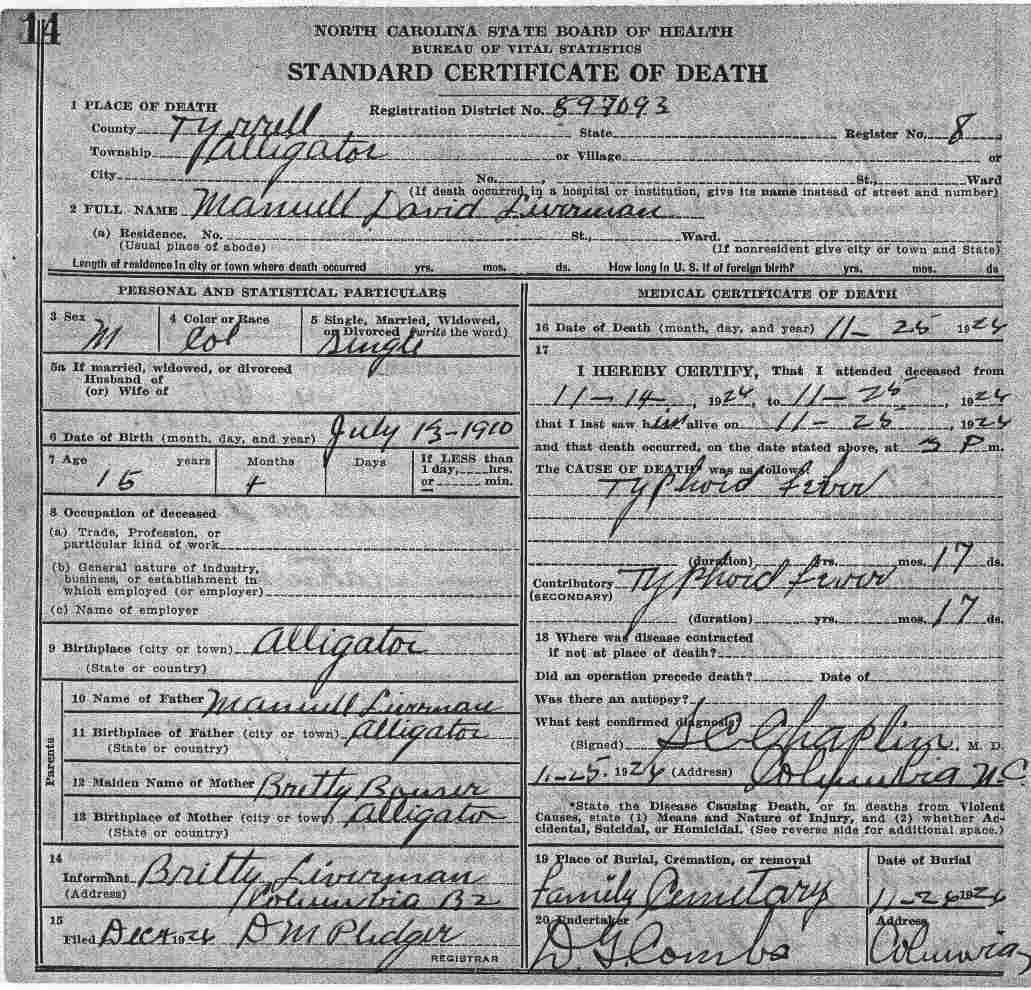 14
NORTH CAROLINA STATE BOARD OF HEALTH
BUREAU OF VITAL STATISTICS
STANDARD CERTIFICATE OF DEATH
1 PLACE OF DEATH Registration District No. 897093
County Tyrrell State Register No. 8
Township Alligator or Village or
City No. , St., Ward
(If death occurred in a hospital or institution, give its name instead of street and number)
2 FULL NAME Manuell David Liverman
(a) Residence. No. St., Ward.
(Usual place of abode) (If nonresident give city or town and State)
Length of residence in city or town where death occurred yrs. mos. ds. How long in U. S. if of foreign birth? yrs. mos. ds
PERSONAL AND STATISTICAL PARTICULARS
3 Sex 4 Color or Race 5 Single, Married, Widowed,
or Divorced (write the word)
M Col Single
5a If married, widowed, or divorced
Husband of
(or) Wife of
6 Date of Birth (month, day, and year) July 13-1910
7 Age years Months Days If LESS than
1 day, hrs.
or min.
15 4
8 Occupation of deceased
(a) Trade, Profession, or
particular kind of work
(b) General nature of industry,
business, or establishment in
which employed (or employer)
(c) Name of employer
9 Birthplace (city or town) Alligator
(State or country)
Parents
10 Name of Father Manuell Liverman
11 Birthplace of Father (city or town) Alligator
(State or country)
12 Maiden Name of Mother Britty Bowser
13 Birthplace of Mother (city or town) Alligator
(State or country)
14
Informant Britty Liverman
(Address) Columbia R2
15
Filed Dec 4 1926 D M Pledger
REGISTRAR
MEDICAL CERTIFICATE OF DEATH
16 Date of Death (month, day, and year) 11-25 1926
17
I HEREBY CERTIFY, That I attended deceased from
11-14-, 1926, to 11-25, 1926
that I last saw him alive on 11-25, 1926
and that death occurred, on the date stated above, at 3 P m.
The CAUSE OF DEATH* was as follows:
Typhoid fever
(duration) yrs. mos. 17 ds.
Contributory Typhoid fever
(SECONDARY)
(duration) yrs. mos. 17 ds.
18 Where was disease contracted
if not at place of death?
Did an operation precede death? Date of
Was there an autopsy?
What test confirmed diagnosis?
(Signed) S C Chaplin, M. D.
11-25, 1926 (Address) Columbia N.C.
*State the Disease Causing Death, or in deaths from Violent
Causes, state (1) Means and Nature of Injury, and (2) whether Ac-
cidental, Suicidal, or Homicidal. (See reverse side for additional space.)
19 Place of Burial, Cremation, or removal Date of Burial
Family Cemetary 11-26 1926
20 Undertaker Address
D. G. Combs Columbia